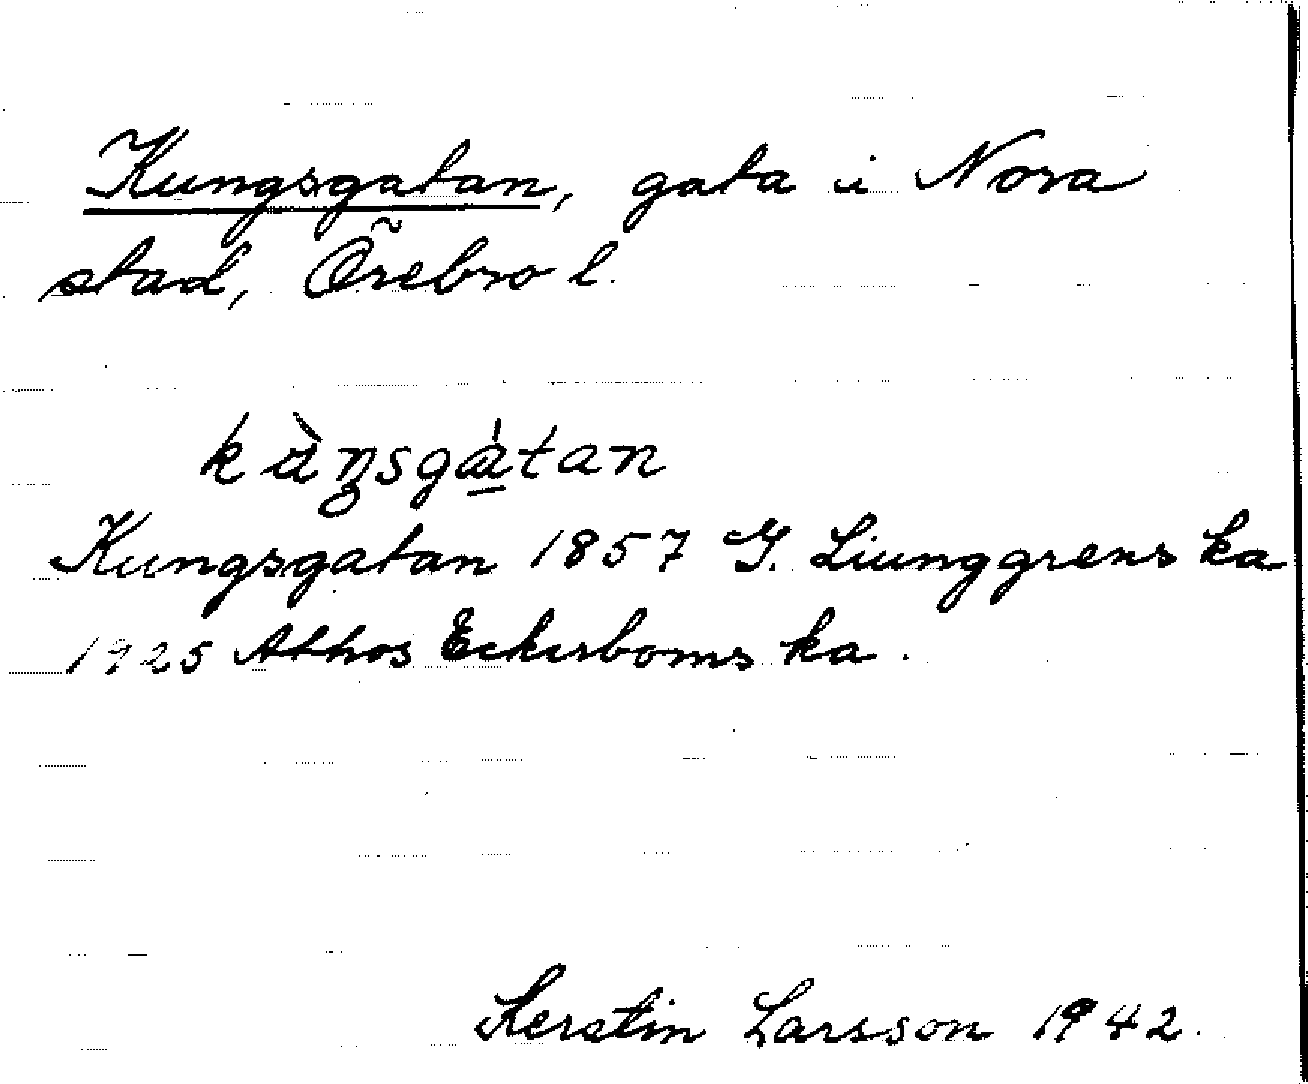 Kungsgatan, gata i Nora
stad, Örebro l.
kùŋsgàtan
Kungsgatan 1857 G. Liunggrens ka
1925 Athos Eckerboms ka.
Kerstin Larsson 1942.